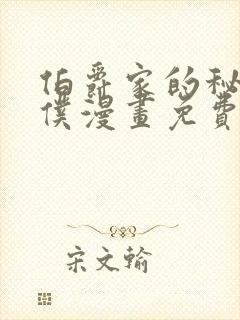 伯爵家的秘
僕漫畫免費
宋文輸